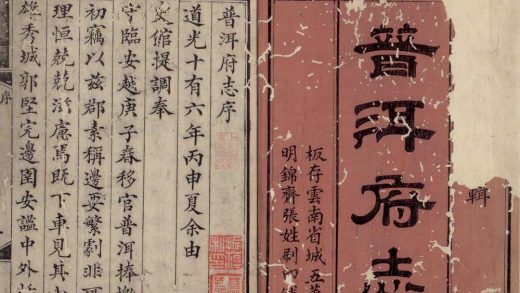 輯
普洱府志
板存雲南省城五
明錦齋張姓刷印
普洱府志序
道光十有六年丙申夏余由
史館提調奉
守臨安越庚子春移官普洱捧檄
初竊以兹郡素稱邊要繁劇非
理恒兢兢滋慮焉既下車見其
雄秀城郭堅完邊圉安謐中外
序